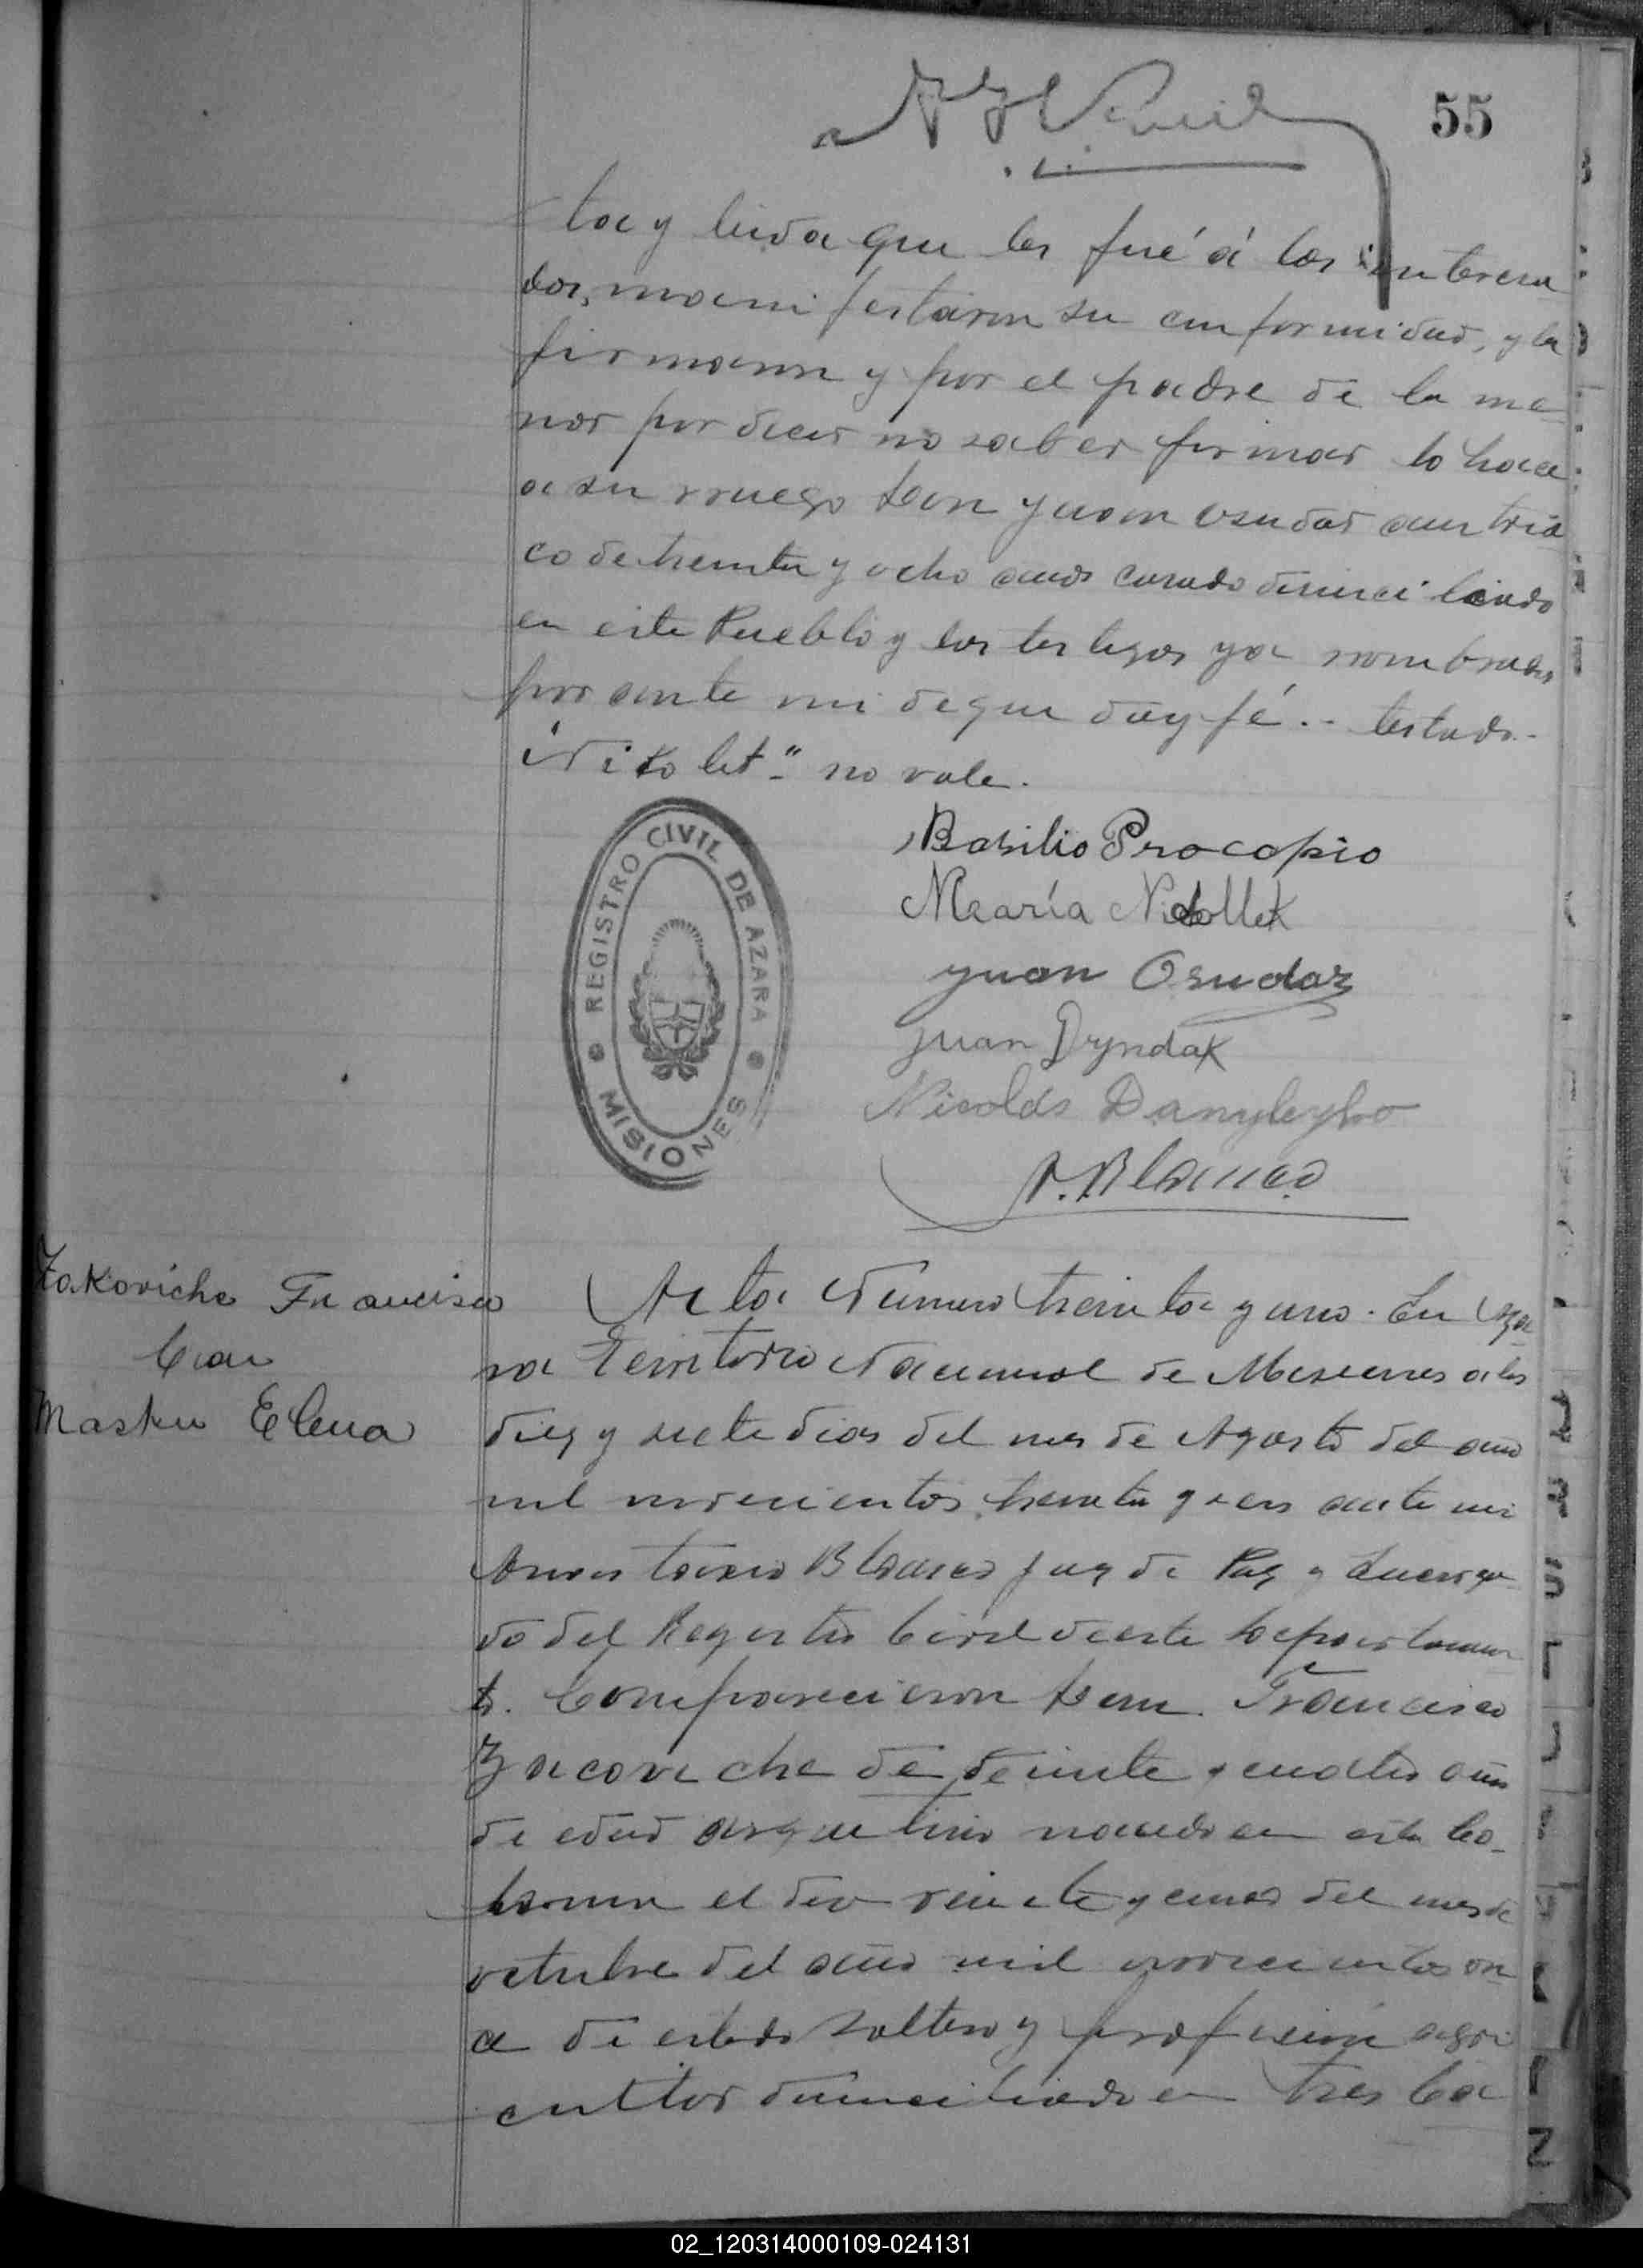 55
ta y leida que les fué á los interesa
dos, manifestaron su conformidad, y la
firmaron y por el padre de la me-
nor por decir no saber firmar lo hace
a su ruego Don Juan Osudar austria
co de treinta y ocho años casado domiciliado
en este Pueblo y los testigos ya nombrados
por ante mi de que doy fé.- testado-
"Nikolet"- no vale.
REGISTRO CIVIL DE AZARA
MISIONES
Basilio Procopio
María Nikollek
Juan Osudar
Juan Dyndak
Nicolás Danyleyko
A. Blanco
Zakoviche Francisco
Con
Masku Elena
Acta Numero treinta y uno. En Aza
ra Territorio Nacional de Misiones a los
diez y siete dias del mes de Agosto del año
mil novecientos treinta y seis ante mi
Blanco Juez de Paz y Encarga
do del Registro Civil de este Departamen
to. Comparecieron Don Francisco
Zacoviche de veinte y cuatro años
de edad argentino nacido en esta Co-
lonia el dia veinte y cinco del mes de
octubre del año mil novecientos on
ce de estado soltero y profesion agri
cultor domiciliado en Tres Ca
02_120314000109-024131